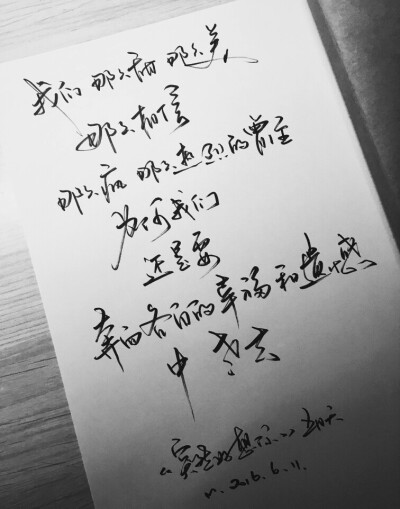 我们 那么甜 那么美
那么相信
那么疯 那么热烈的曾经
为何我们
还是要
奔向各自的幸福和遗憾
中 老去
《突然好想你》五月天
2016.6.11.